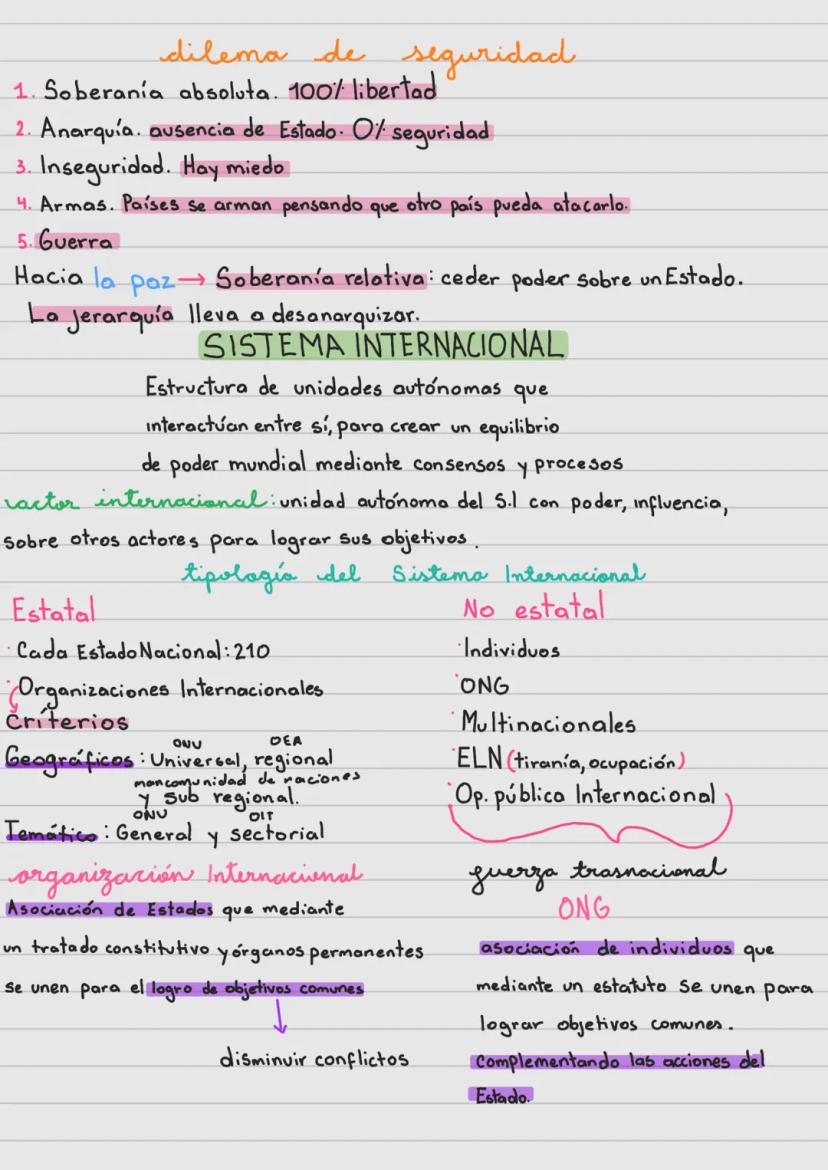 dilema de seguridad
1. Soberanía absoluta. 100% libertad
2. Anarquía. ausencia de Estado. 0% seguridad
3. Inseguridad. Hay miedo
4. Armas. Países se arman pensando que otro país pueda atacarlo.
5. Guerra
Hacia la paz → Soberanía relativa: ceder poder sobre un Estado.
La jerarquía lleva a desanarquizar.
SISTEMA INTERNACIONAL
Estructura de unidades autónomas que
interactúan entre sí, para crear un equilibrio
de poder mundial mediante consensos y procesos
actor internacional: unidad autónoma del S.I con poder, influencia,
sobre otros actores para lograr sus objetivos.
tipología del Sistema Internacional
Estatal
· Cada Estado Nacional: 210
· Organizaciones Internacionales
Críterios
ONU OEA
Geográficos: Universal, regional
mancomunidad de naciones
y sub regional.
ONU OIT
Temático: General y sectorial
organización Internacional
Asociación de Estados que mediante
un tratado constitutivo y órganos permanentes
se unen para el logro de objetivos comunes
↓
disminuir conflictos
No estatal
· Individuos
· ONG
· Multinacionales
· ELN (tiranía, ocupación)
· Op. pública Internacional
fuerza trasnacional
ONG
asociación de individuos que
mediante un estatuto se unen para
lograr objetivos comunes.
complementando las acciones del
Estado.